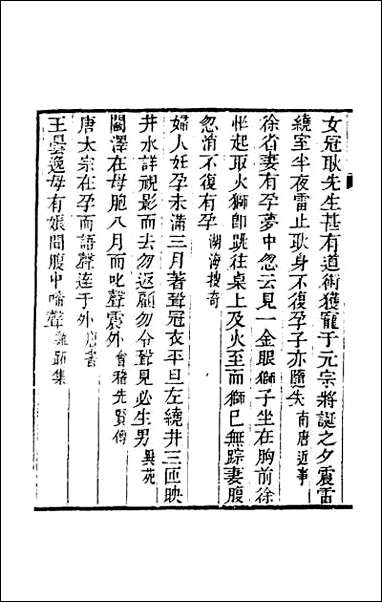 女冠耿先生甚有道術獲寵于元宗將誕之夕震雷
繞室半夜雷止耿身不復孕子亦隨失南唐近事
徐省妻有孕夢中忽云見一金眼獅子坐在胸前徐
性起取火獅卽跳往桌上及火至而獅已無踪妻腹
忽消不復有孕湖海搜奇
婦人妊孕未滿三月著壻冠衣平旦左繞井三匝映
井水詳視影而去勿返顧勿令壻見必生男異苑
闞澤在母胞八月而叱聲震外會稽先賢傳
唐太宗在孕而語聲達于外唐書
王曇逸母有娠聞腹中啼聲雞跖集